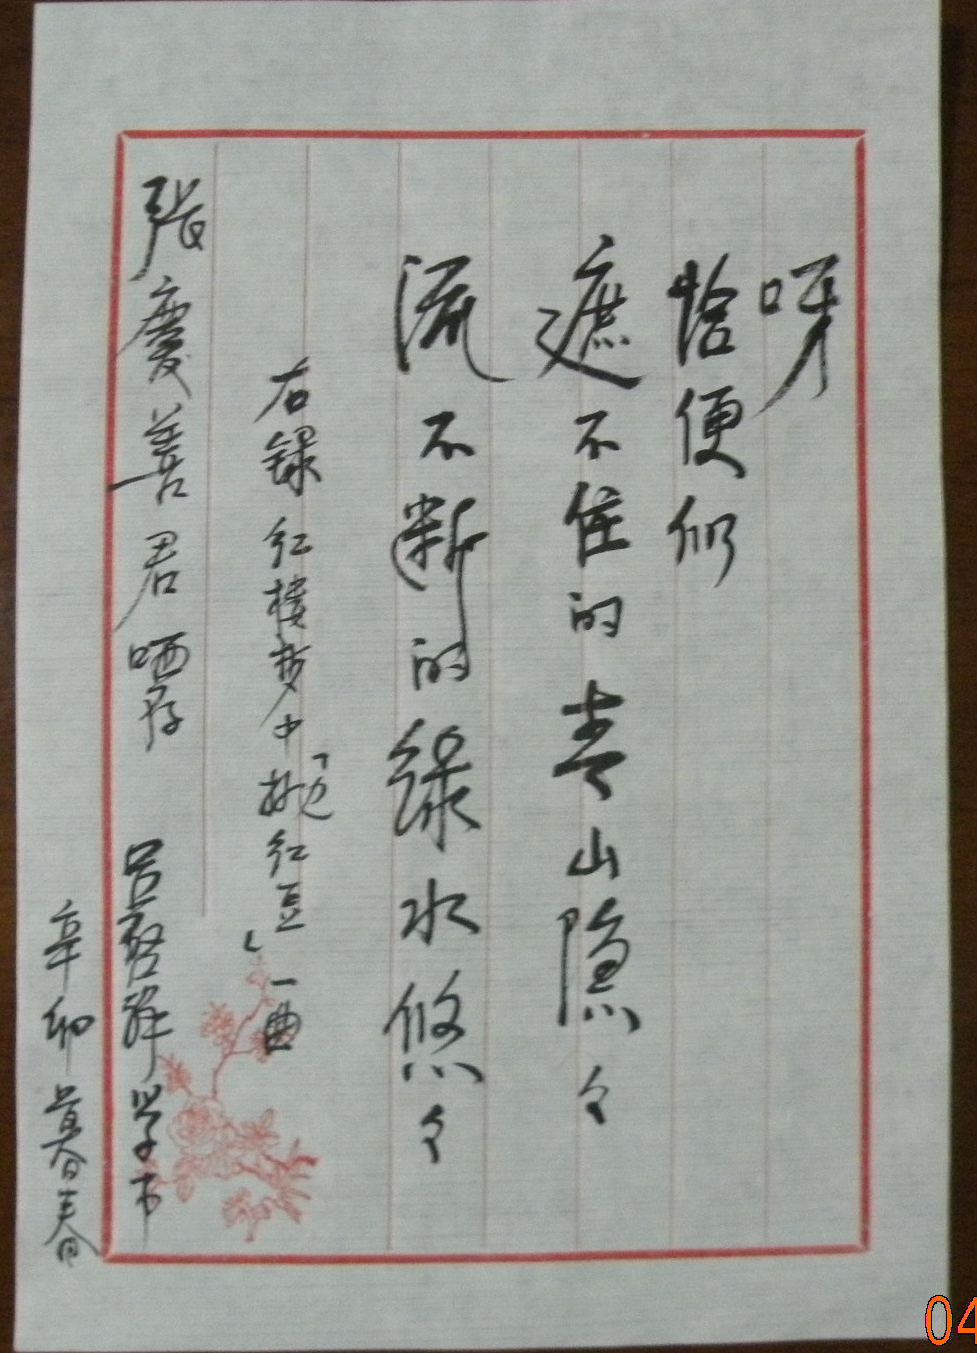 呀
恰便似
遮不住的青山隐々
流不断的绿水悠々
右録红楼梦中「抛红豆」一曲
張慶善君哂存
吕启祥学书
辛卯暮春
04